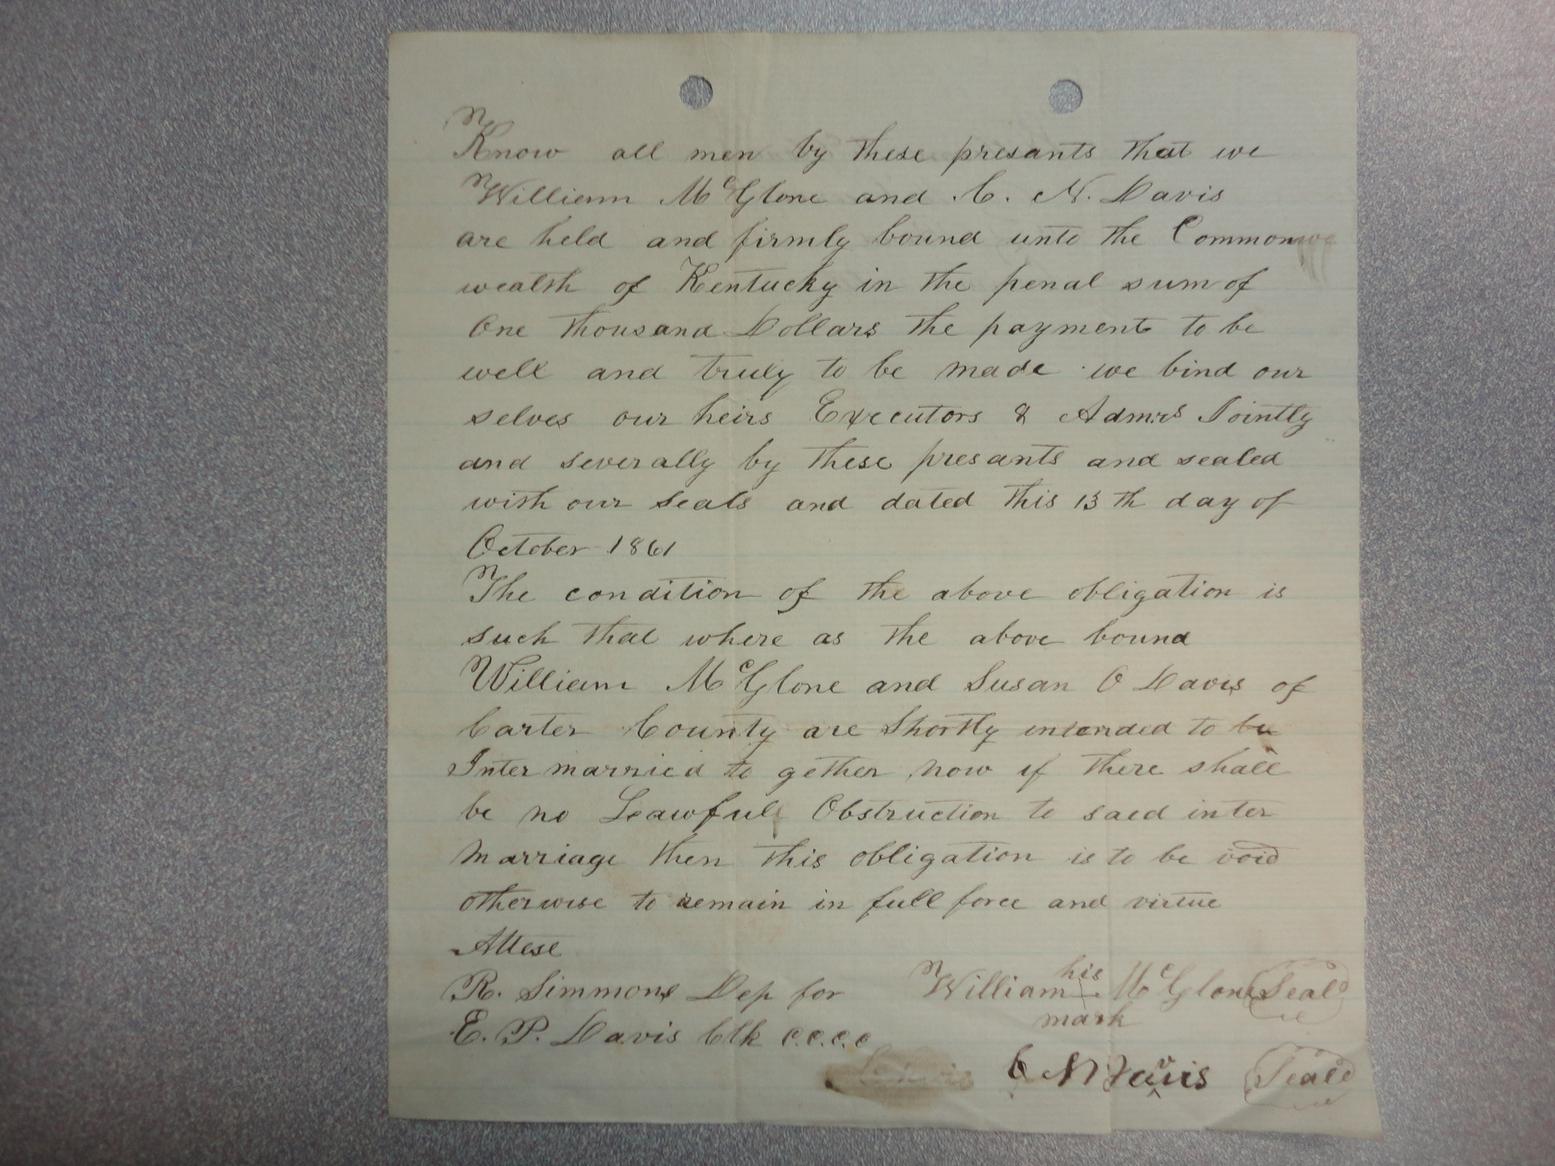 Know all men by these presants that we
William McGlone and C. N. Davis
are held and firmly bound unto the Common
wealth of Kentucky in the penal sum of
One thousand Dollars the payment to be
well and truly to be made we bind our
selves our heirs Executors & Admrs Jointly
and severally by these presants and sealed
with our seals and dated this 13th day of
October 1861
The condition of the above obligation is
such that where as the above bound
William McGlone and Susan O Davis of
Carter County are Shortly intended to be
Inter married to gether now if there shall
be no Lawfull Obstruction to said inter
marriage then this obligation is to be void
otherwise to remain in full force and virtue
Attese
R. Simmons Dep for William his McGlone Seal
mark
E. P. Davis Clk C.C.C.C
C N Davis Seal